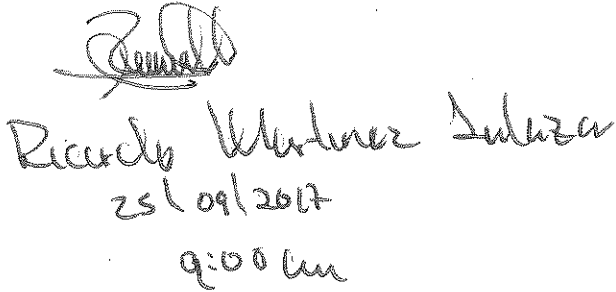 Ricardo Martinez
25/09/2017
9:00 am